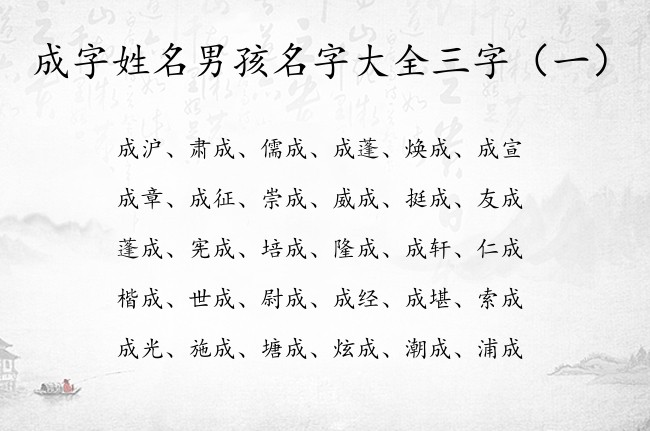 成字姓名男孩名字大全三字（一）
成沪、肃成、儒成、成蓬、焕成、成宣
成章、成征、崇成、威成、挺成、友成
蓬成、宪成、培成、隆成、成轩、仁成
楷成、世成、尉成、成经、成堪、索成
成光、施成、塘成、炫成、潮成、浦成